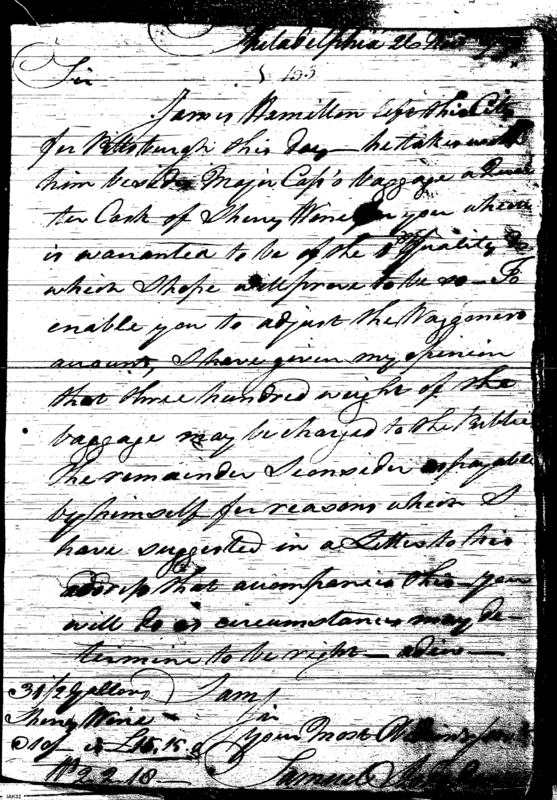 Philadelphia 26 Nov
Sir
James Hamilton left this City
for Pittsburgh this Day — he takes with
him besides Major Cass's baggage a Quar
ter Cask of Sherry Wine for you which
is warranted to be of the 1st Quality &
which I hope will prove to be so — To
enable you to adjust the Waggoners
account, I have given my opinion
that three hundred weight of the
baggage may be charged to the Public
The remainder I consider as payable
by himself for reasons which I
have suggested in a Letter to his
address that accompanies this — you
will do as circumstances may de-
termine to be right — adieu —
I am
Sir
your most Obedient
Samuel
31 1/2 Gallons
Sherry Wine
IAK32